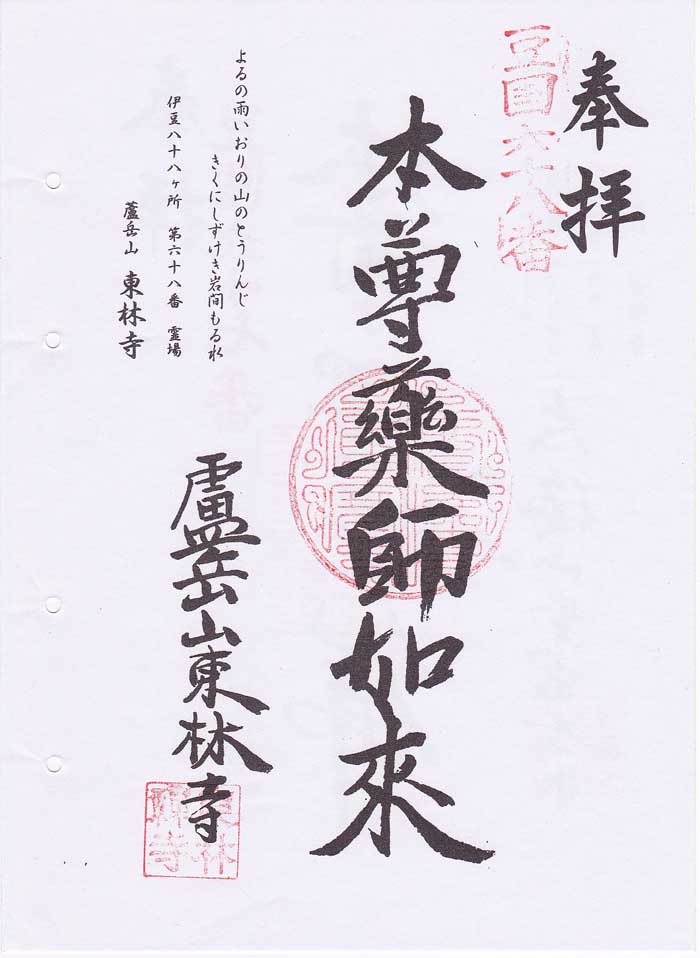 奉拝
豆国六十八番
本尊薬師如來
よるの雨いおりの山のとうりんじ
きくにしずけき岩間もる水
伊豆八十八ヶ所 第六十八番 霊場
蘆岳山 東林寺
盧岳山東林寺
東林禅寺